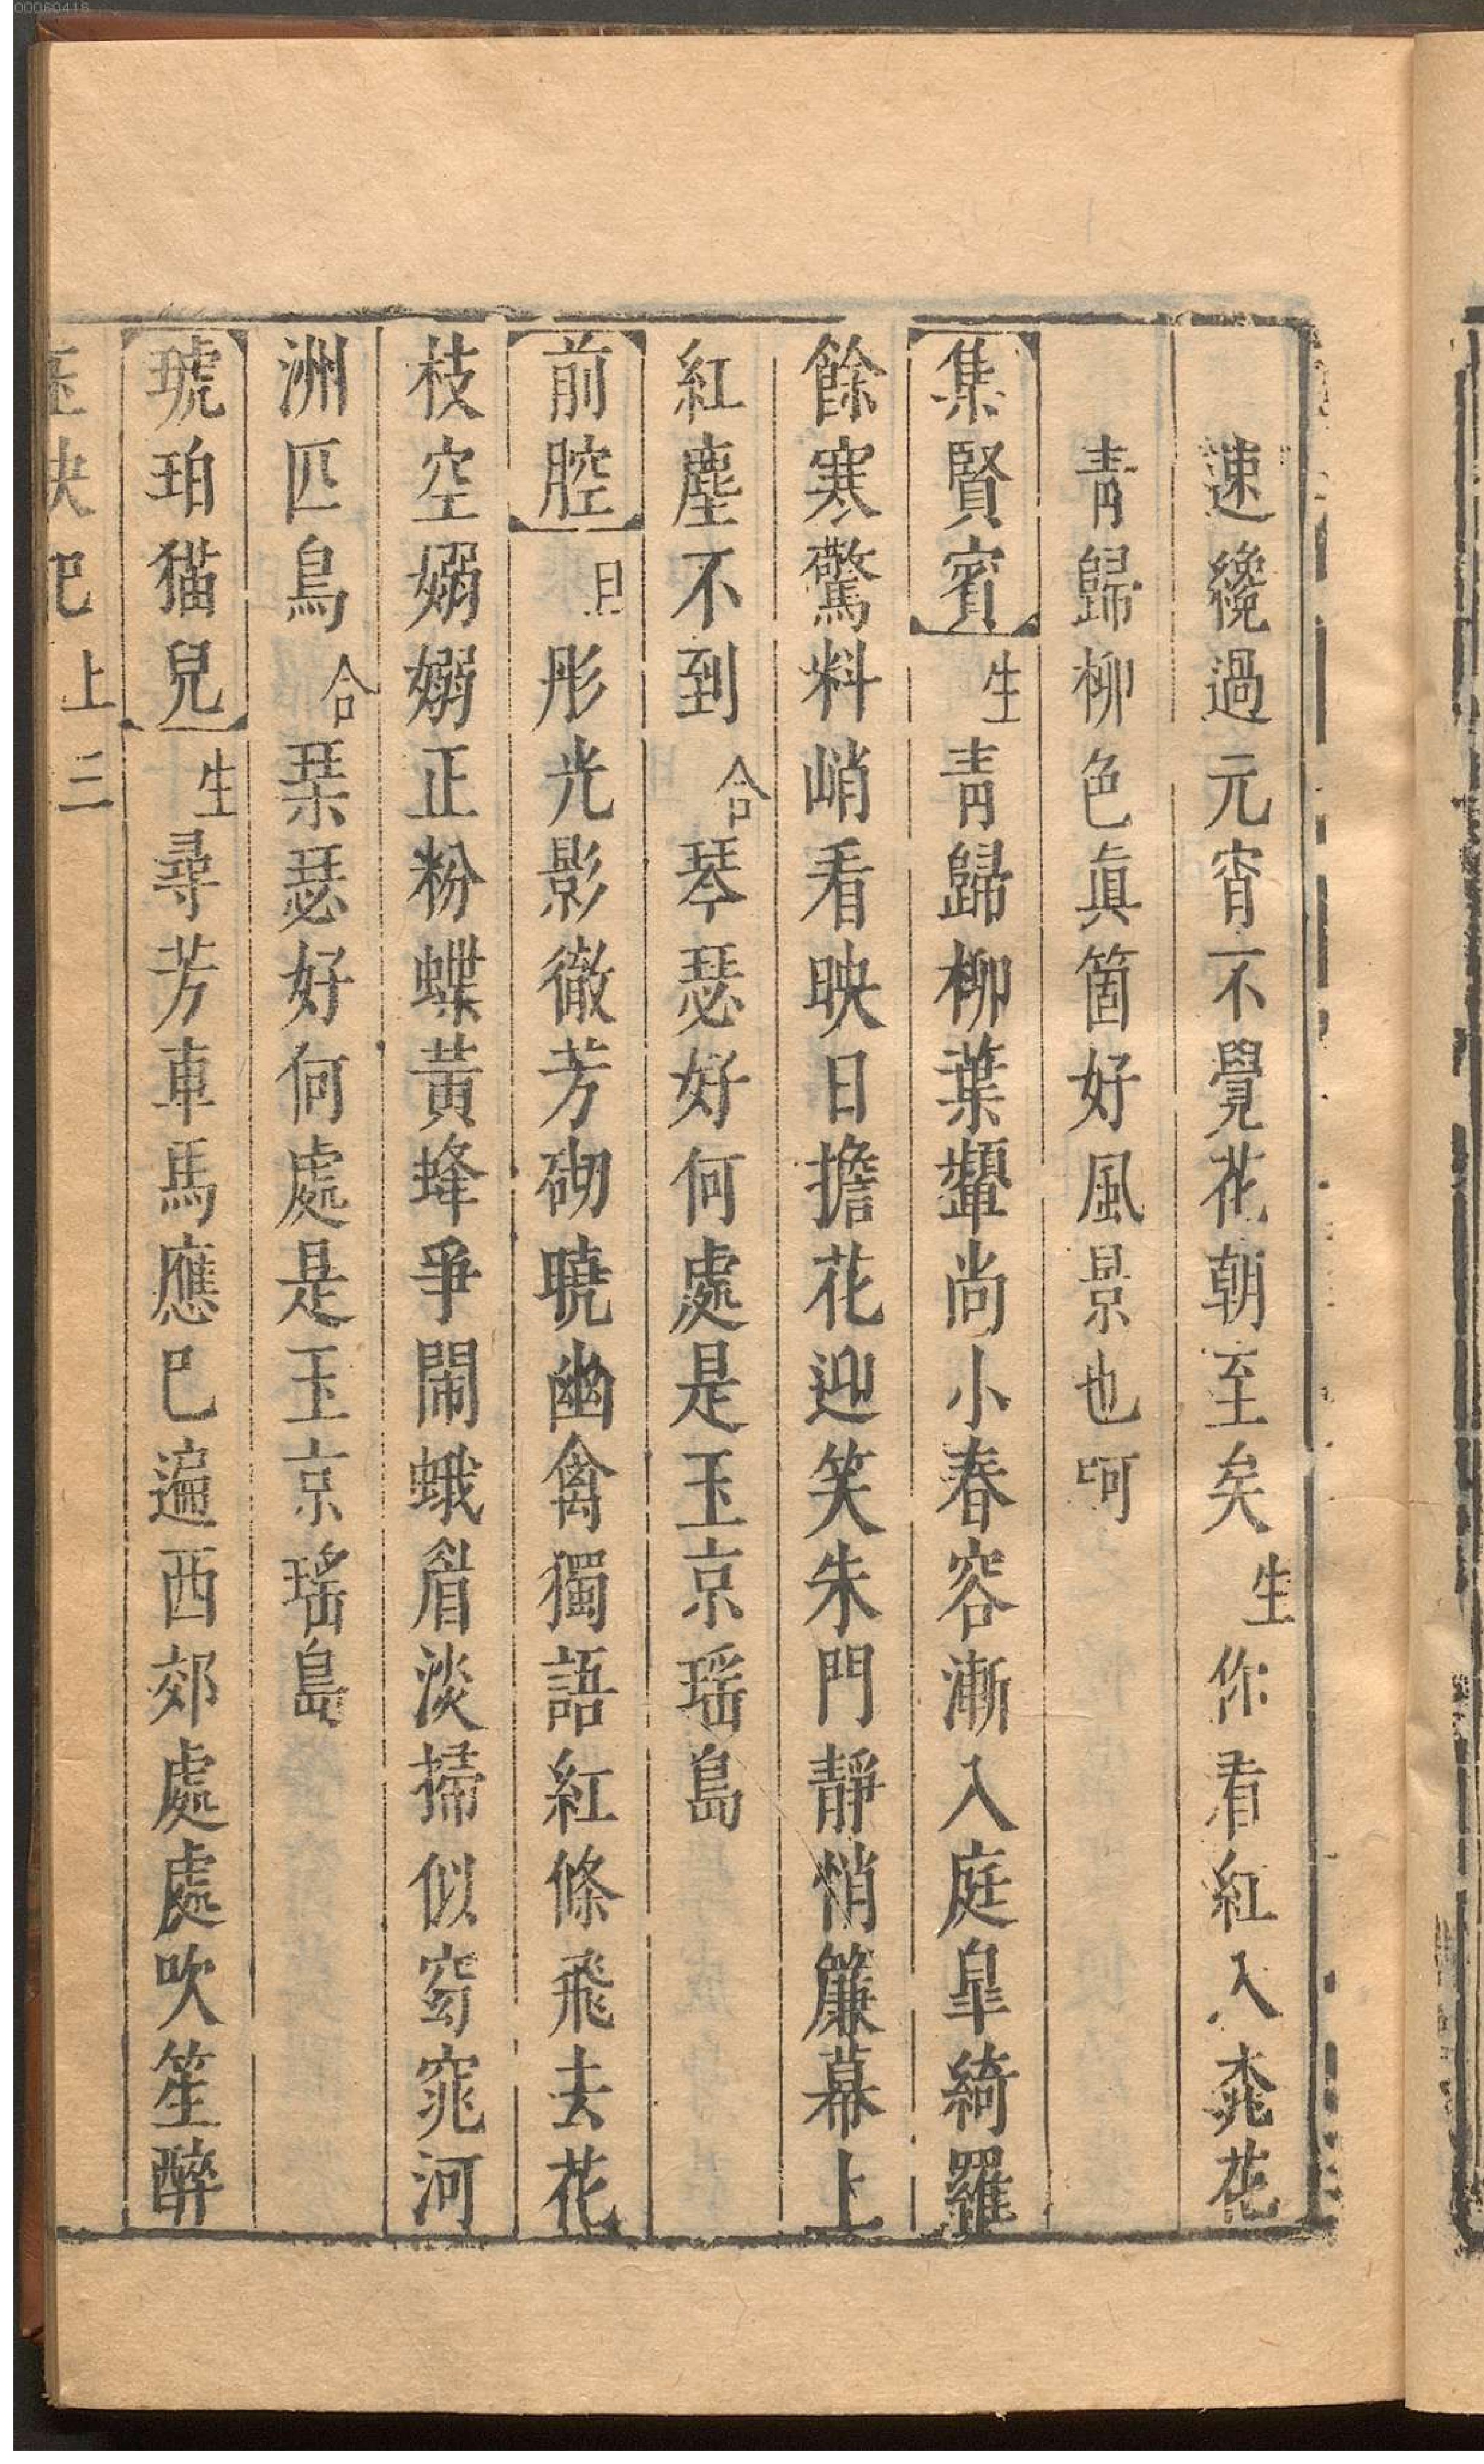 00060418
速纔過元宵不覺花朝至矣生你看紅入桃花
靑歸柳色眞箇好風景也呵
集賢賓生靑歸柳葉顰尚小春容漸入庭皐綺羅
餘寒驚料峭看映日擔花迎笑朱門靜悄簾幕上
紅塵不到合琴瑟好何處是玉京瑶島
前腔旦彤光影徹芳砌曉幽禽獨語紅條飛去花
枝空嫋嫋正粉蝶黃蜂爭鬧蛾眉淡掃似窈窕河
洲匹鳥合琹瑟好何處是玉京瑤島
琥珀猫兒生尋芳車馬應巳遍西郊處處吹笙醉
玉玦記上三